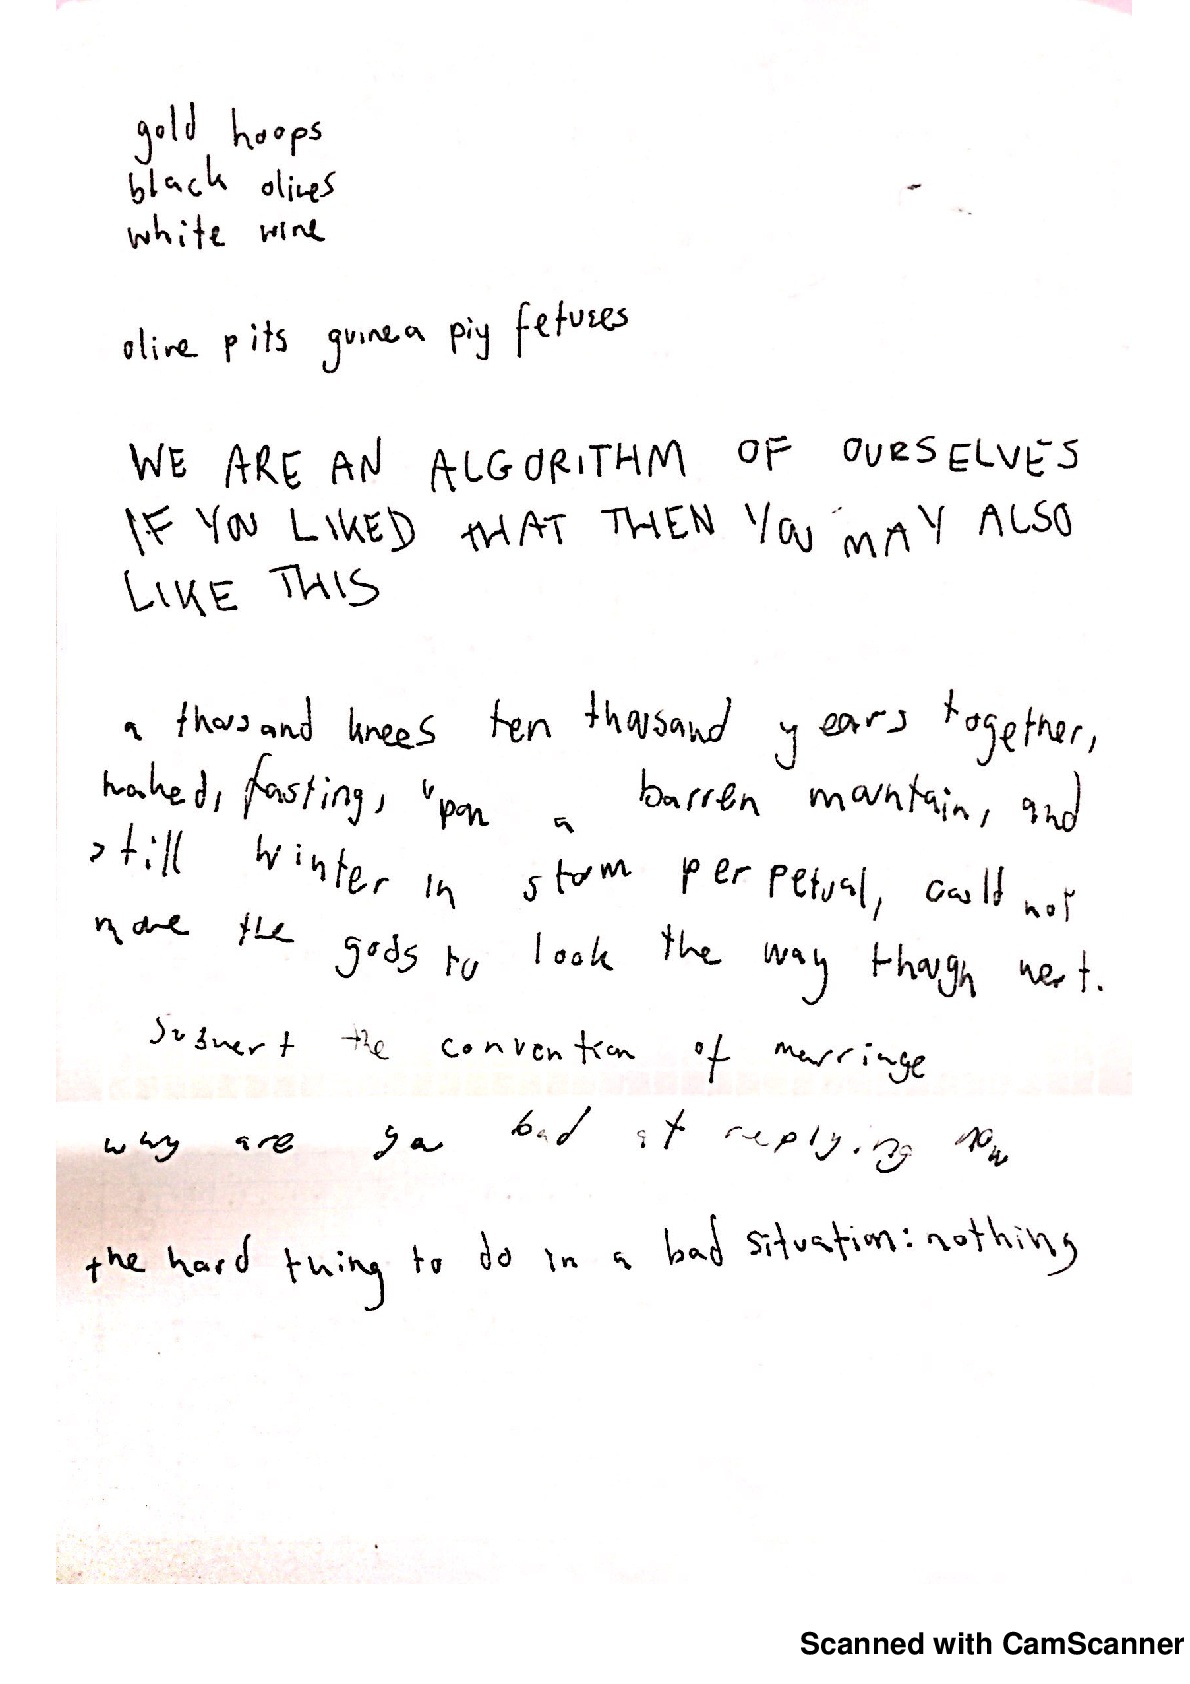 gold hoops
black olives
white wine
olive pits guinea pig fetuses
WE ARE AN ALGORITHM OF OURSELVES
IF YOU LIKED THAT THEN YOU MAY ALSO
LIKE THIS
a thousand knees ten thousand years together,
naked, fasting, upon a barren mountain, and
still winter in storm perpetual, could not
move the gods to look the way though wert.
subvert the convention of marriage
why are you bad at replying now
the hard thing to do in a bad situation: nothing
Scanned with CamScanner